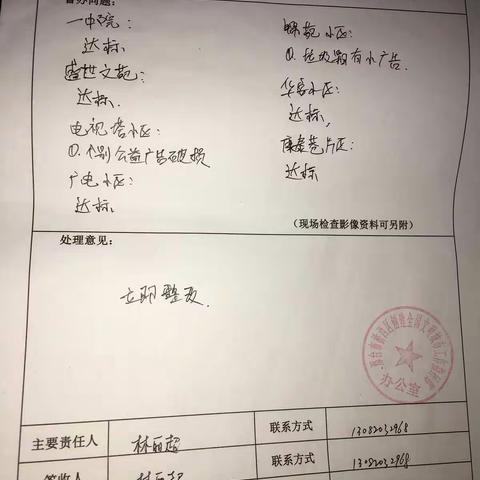 督办问题：
一中院：
达标
盛世文苑：
达标
电视塔小区：
①. 个别公益广告破损
广电小区：
达标
小区：
①. 有小广告.
小区：
达标
康泰苑片区：
达标
（现场检查影像资料可另附）
处理意见：
立即整改.
办公室
主要责任人 林丽超 联系方式 13082032968
签收人 林丽超 联系方式 13082032968